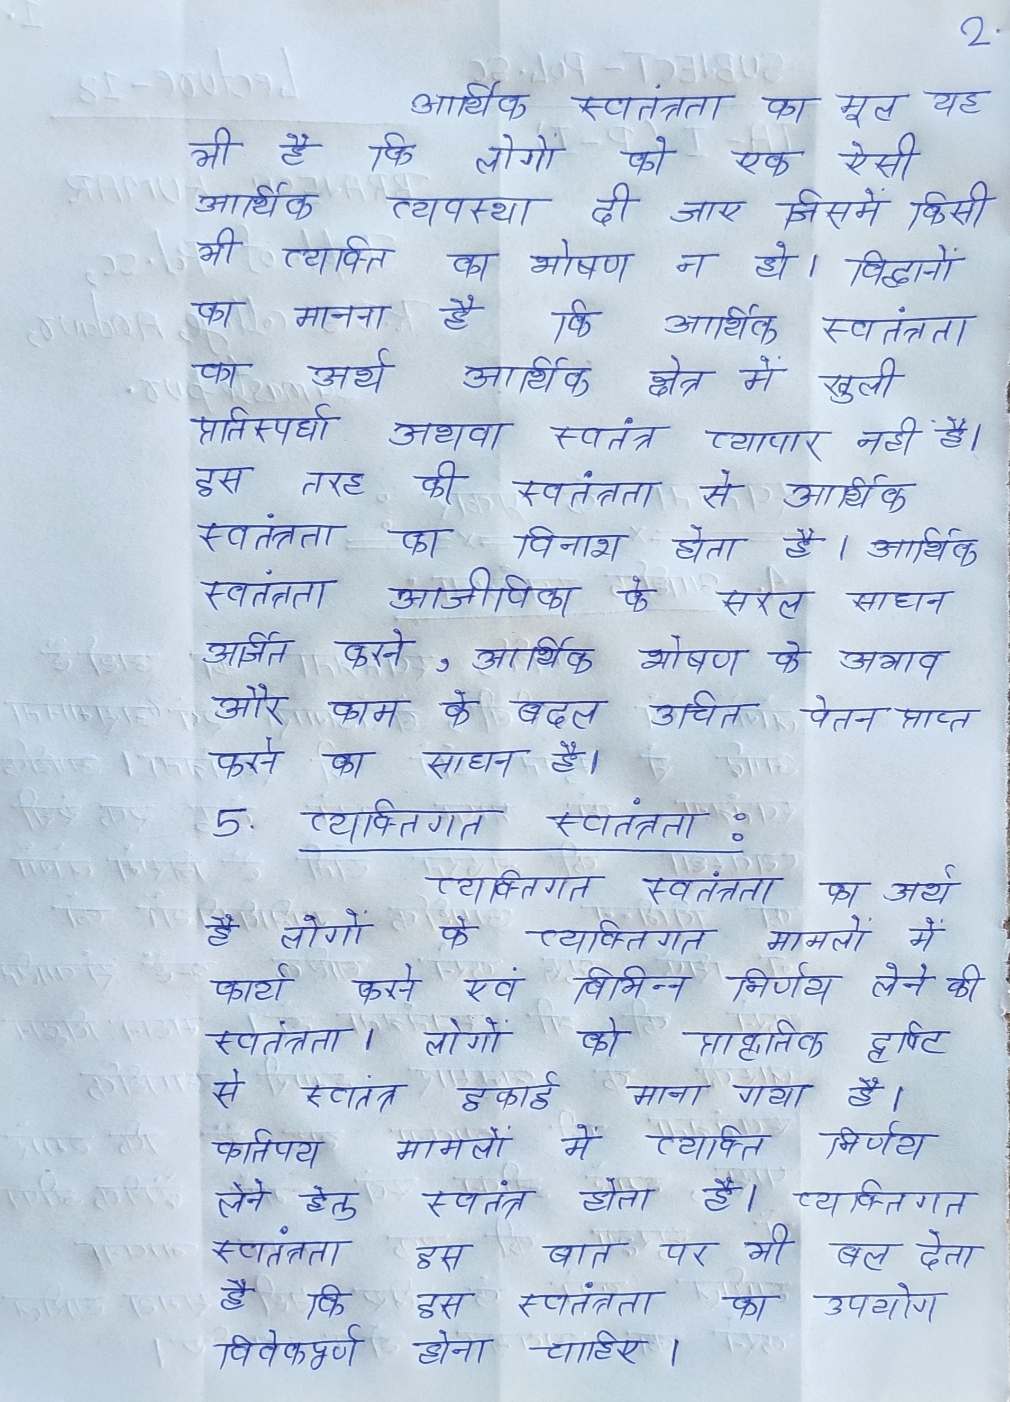 2.
आर्थिक स्वतंत्रता का मूल यह
भी है कि लोगों को एक ऐसी
आर्थिक व्यवस्था दी जाए जिसमें किसी
भी व्यक्ति का शोषण न हो। विद्वानों
का मानना है कि आर्थिक स्वतंत्रता
का अर्थ आर्थिक क्षेत्र में खुली
प्रतिस्पर्धा अथवा स्वतंत्र व्यापार नही है।
इस तरह की स्वतंत्रता से आर्थिक
स्वतंत्रता का विनाश होता है। आर्थिक
स्वतंत्रता आजीविका के सरल साधन
अर्जित करने, आर्थिक शोषण के अभाव
और काम के बदल उचित वेतन प्राप्त
करने का साधन है।
5. व्यक्तिगत स्वतंत्रता :
व्यक्तिगत स्वतंत्रता का अर्थ
है लोगों के व्यक्तिगत मामलों में
कार्य करने एवं विभिन्न निर्णय लेने की
स्वतंत्रता। लोगों को प्राकृतिक दृष्टि
से स्वतंत्र इकाई माना गया है।
कतिपय मामलों में व्यक्ति निर्णय
लेने हेतु स्वतंत्र होता है। व्यक्तिगत
स्वतंत्रता इस बात पर भी बल देता
है कि इस स्वतंत्रता का उपयोग
विवेकपूर्ण होना चाहिए।